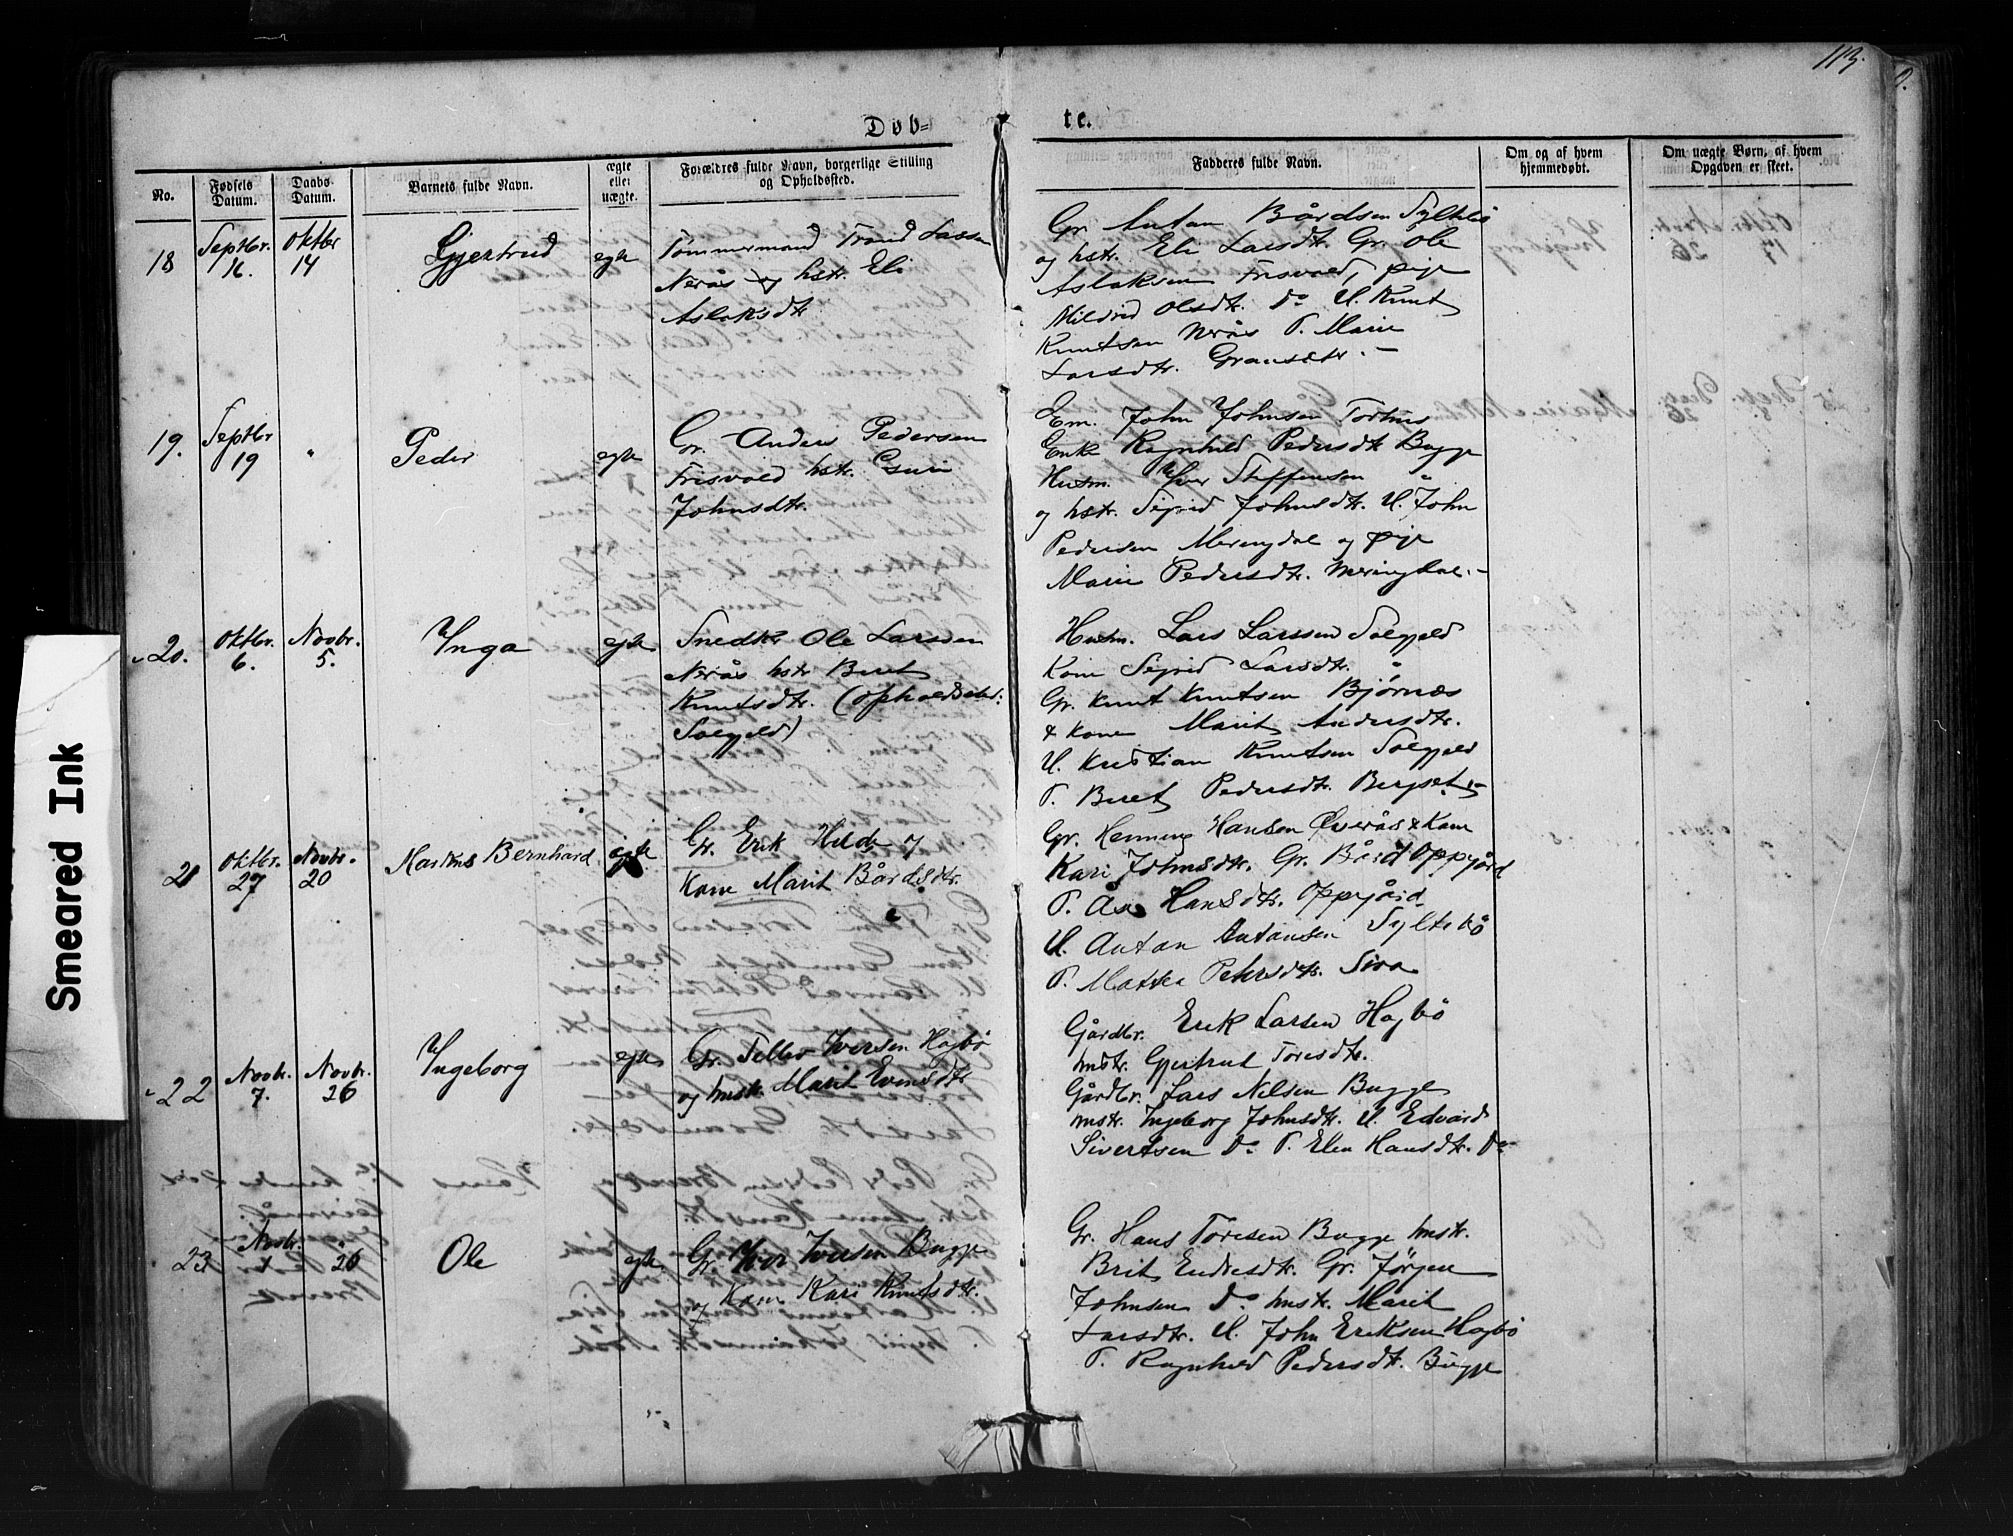 113.
Døb-
te.
No.
Fødsels Datum.
Daabs Datum.
Barnets fulde Navn.
ægte eller uægte.
Forældres fulde Navn, borgerlige Stilling og Opholdssted.
Faddernes fulde Navn.
Om og af hvem hjemmedøbt.
Om uægte Børn, af hvem Opgaven er skeet.
18
Septbr. 16.
Oktbr 14
Gjertrud
egte
Tømmermand Trond Larssen
Nerås og hstr. Eli
Aslaksdtr
Gr. Anton Bårdsen Syltebø
og hstr. Eli Larsdtr. Gr. Ole
Aslaksen Frisvold, pige
Mildrid Olsdtr. Do U. Knut
Knutsen Nerås P. Marie
Larsdtr. Gransetr. –
19.
Septbr 19
"
Peder
egte
Gr. Anders Pedersen
Frisvold hstr. Guri
Johnsdtr.
Em. John Johnsen Torhus
Enke Ragnhild Pedersdtr Bugge
Husm. Iver Steffensen
og hstr. Sigrid Johnsdtr. U. John
Pedersen Meringdal og pige
Marie Pedersdtr. Meringdal. –
20.
Oktbr. 6.
Novbr. 5.
Inga
egte
Snedker Ole Larssen
Nerås hstr Beret
Knutsdtr. (opholdssted:
Solgjeld)
Husm. Lars Larssen Solgjeld
Kone Sigrid Larsdtr.
Gr. Knut Knutsen Bjørnes
& Kone Marit Andersdtr.
U. Kristian Knutsen Solgjeld
P. Beret Pedersdtr. Bergset –
21
Oktbr. 27
Novbr. 20
Markus Bernhard
egte
Gr. Erik Hilde og
Kone Marit Bårdsdtr.
Gr. Henning Hansen Øverås & Kone
Kari Johnsdtr. Gr. Bård Oppgård
P. Åse Hansdtr. Oppgård
U. Anton Antonsen Syltebø
P. Petersdtr. Sira
22
Novbr. 7.
Novbr. 26
Ingeborg
egte
Gr. Iversen Hagbø
og hustr. Marit Evensdtr
Gårdbr. Erik Larsen Hagbø
hustr. Gjertrud Toresdtr.
Gårdbr. Lars Nilsen Bugge
hustr. Ingeborg Johnsdtr. U. Edvard
Sivertsen Do P. Elen Hansdtr. Do
23
Novbr. 1
" 26
Ole
egte
Gr. Iver Iversen Bugge
og Kone Kari Knutsdtr.
Gr. Hans Toresen Bugge hustr.
Brit Endresdtr. Gr. Jørgen
Johnsen Do hustr. Marit
Larsdtr. U. John Eriksen Hagbø
P. Ragnhild Pedersdtr. Bugge
Smeared Ink